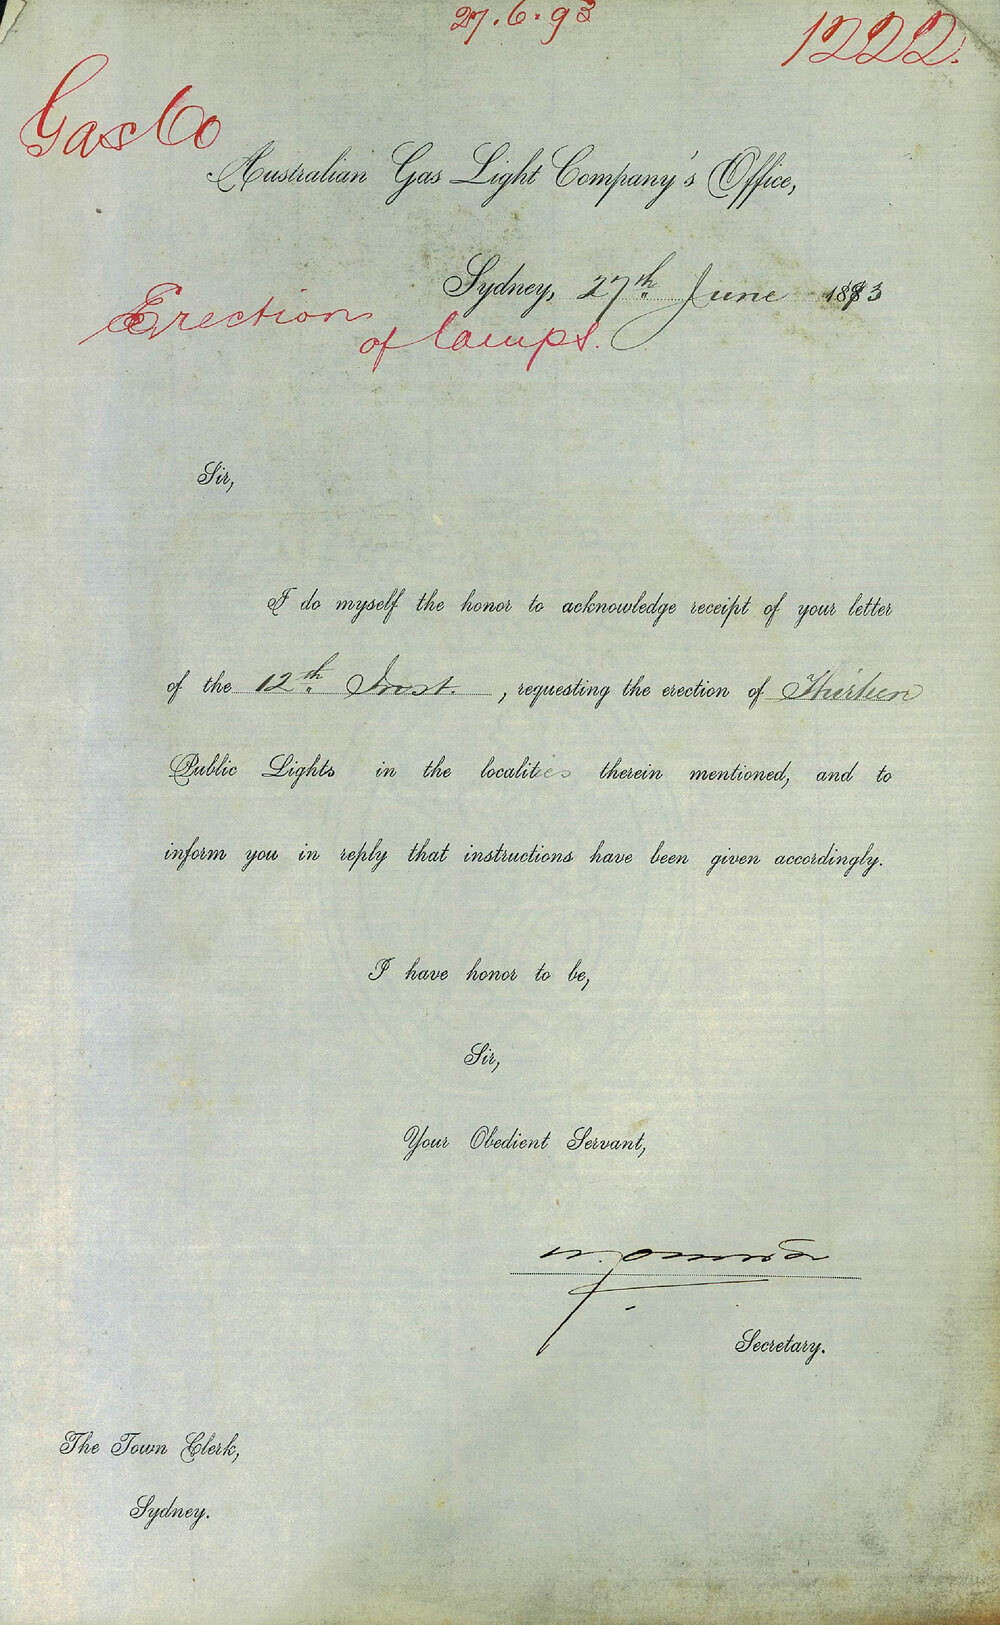 27.6.93
1222.
Gas Co
Australian Gas Light Company's Office,
Sydney, 27th. June 1893
Erection
of lamps.
Sir,
I do myself the honor to acknowledge receipt of your letter
of the 12th. Inst. , requesting the erection of Thirteen
Public Lights in the localities therein mentioned, and to
inform you in reply that instructions have been given accordingly.
I have honor to be,
Sir,
Your Obedient Servant,
Secretary.
The Town Clerk,
Sydney.